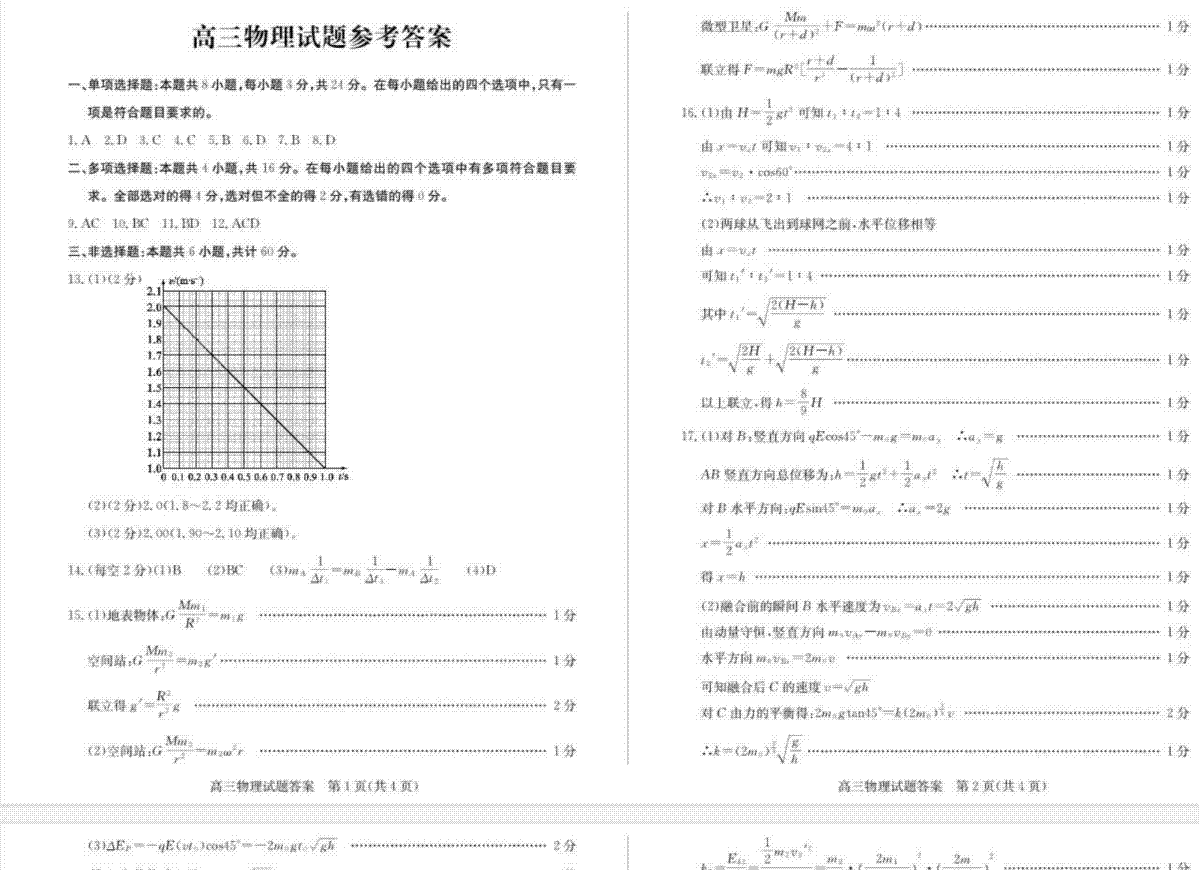 高三物理试题参考答案
一、单项选择题:本题共8小题,每小题3分,共24分。在每小题给出的四个选项中,只有一
项是符合题目要求的。
1. A 2. D 3. C 4. C 5. B 6. D 7. B 8. D
二、多项选择题:本题共4小题,共16分。在每小题给出的四个选项中有多项符合题目要
求。全部选对的得4分,选对但不全的得2分,有选错的得0分。
9. AC 10. BC 11. BD 12. ACD
三、非选择题:本题共6小题,共计60分。
13. (1)(2分)
v/(m·s⁻¹)
2.1
2.0
1.9
1.8
1.7
1.6
1.5
1.4
1.3
1.2
1.1
1.0
0 0.1 0.2 0.3 0.4 0.5 0.6 0.7 0.8 0.9 1.0 t/s
(2)(2分)2.0(1.8~2.2均正确)。
(3)(2分)2.00(1.90~2.10均正确)。
14. (每空2分)(1)B (2)BC (3)m_A 1/Δt₁=m_B 1/Δt₃-m_A 1/Δt₂ (4)D
15. (1)地表物体:G Mm₁/R²=m₁g 1分
空间站:G Mm₂/r²=m₂g′ 1分
联立得g′=R²/r² g 2分
(2)空间站:G Mm₂/r²=m₂ω²r 1分
高三物理试题答案 第1页(共4页)
微型卫星:G Mm/(r+d)²+F=mω²(r+d) 1分
联立得F=mgR²[(r+d)/r³-1/(r+d)²] 1分
16. (1)由H=1/2 gt²可知t₁:t₂=1:4 1分
由x=vₓt可知v₁:v₂ₓ=4:1 1分
v₂ₓ=v₂·cos60° 1分
∴v₁:v₂=2:1 1分
(2)两球从飞出到球网之前,水平位移相等
由x=vₓt 1分
可知t₁′:t₂′=1:4 1分
其中t₁′=√(2(H-h)/g) 1分
t₂′=√(2H/g)+√(2(H-h)/g) 1分
以上联立,得h=8/9 H 1分
17. (1)对B:竖直方向qEcos45°-m₀g=m₀a_y ∴a_y=g 1分
AB竖直方向总位移为:h=1/2 gt²+1/2 a_y t² ∴t=√(h/g) 1分
对B水平方向:qEsin45°=m₀aₓ ∴aₓ=2g 1分
x=1/2 aₓt² 1分
得x=h 1分
(2)融合前的瞬间B水平速度为v_Bx=aₓt=2√(gh) 1分
由动量守恒,竖直方向m₀v_Ay-m₀v_By=0 1分
水平方向m₀v_Bx=2m₀v 1分
可知融合后C的速度v=√(gh)
对C由力的平衡得:2m₀gtan45°=k(2m₀)^ v 2分
∴k=(2m₀)^ √(g/h) 1分
高三物理试题答案 第2页(共4页)
(3)ΔE_P=-qE(vt₀)cos45°=-2m₀gt₀√(gh) 2分